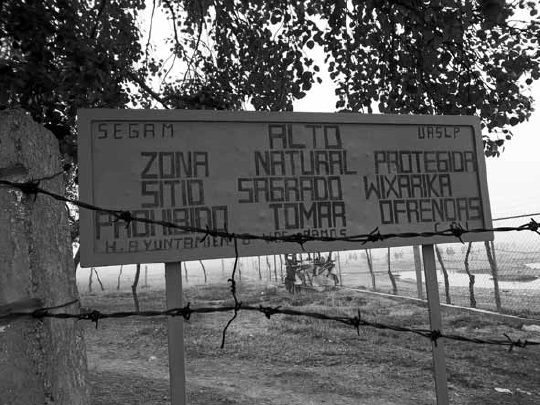 SEGAM ALTO UASLP
ZONA NATURAL PROTEGIDA
SITIO SAGRADO WIXARIKA
PROHIBIDO TOMAR OFRENDAS
H. AYUNTAMIENTO